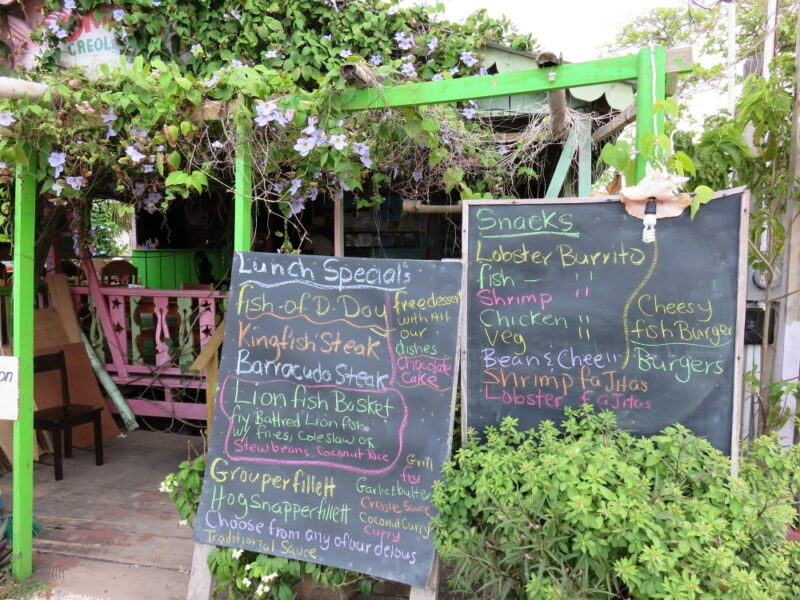 CREOLE
on
Lunch Special's
fish-of-D-Day
Kingfish Steak
Barracuda Steak
free dessert
with All
our
dishes
Chocolate
Cake
Lion fish Basket
fry Battred Lion fish
w/ fries, Coleslaw or
Stew beans, Coconut Rice
Grouper fillett
Hogsnapper fillett
Grill
fry
Garlic butter
Creole Sauce
Coconut Curry
Curry
Choose from any of our delous
Traditional Sauce
Snacks
Lobster Burrito
fish - "
Shrimp "
Chicken "
Veg "
Bean & Chee "
Shrimp fajitas
Lobster fajitas
Cheesy
fish Burger
Burgers